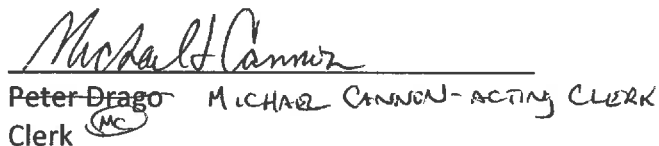 Michael J Cannon
Peter Drago MICHAEL CANNON-ACTING CLERK
Clerk MC